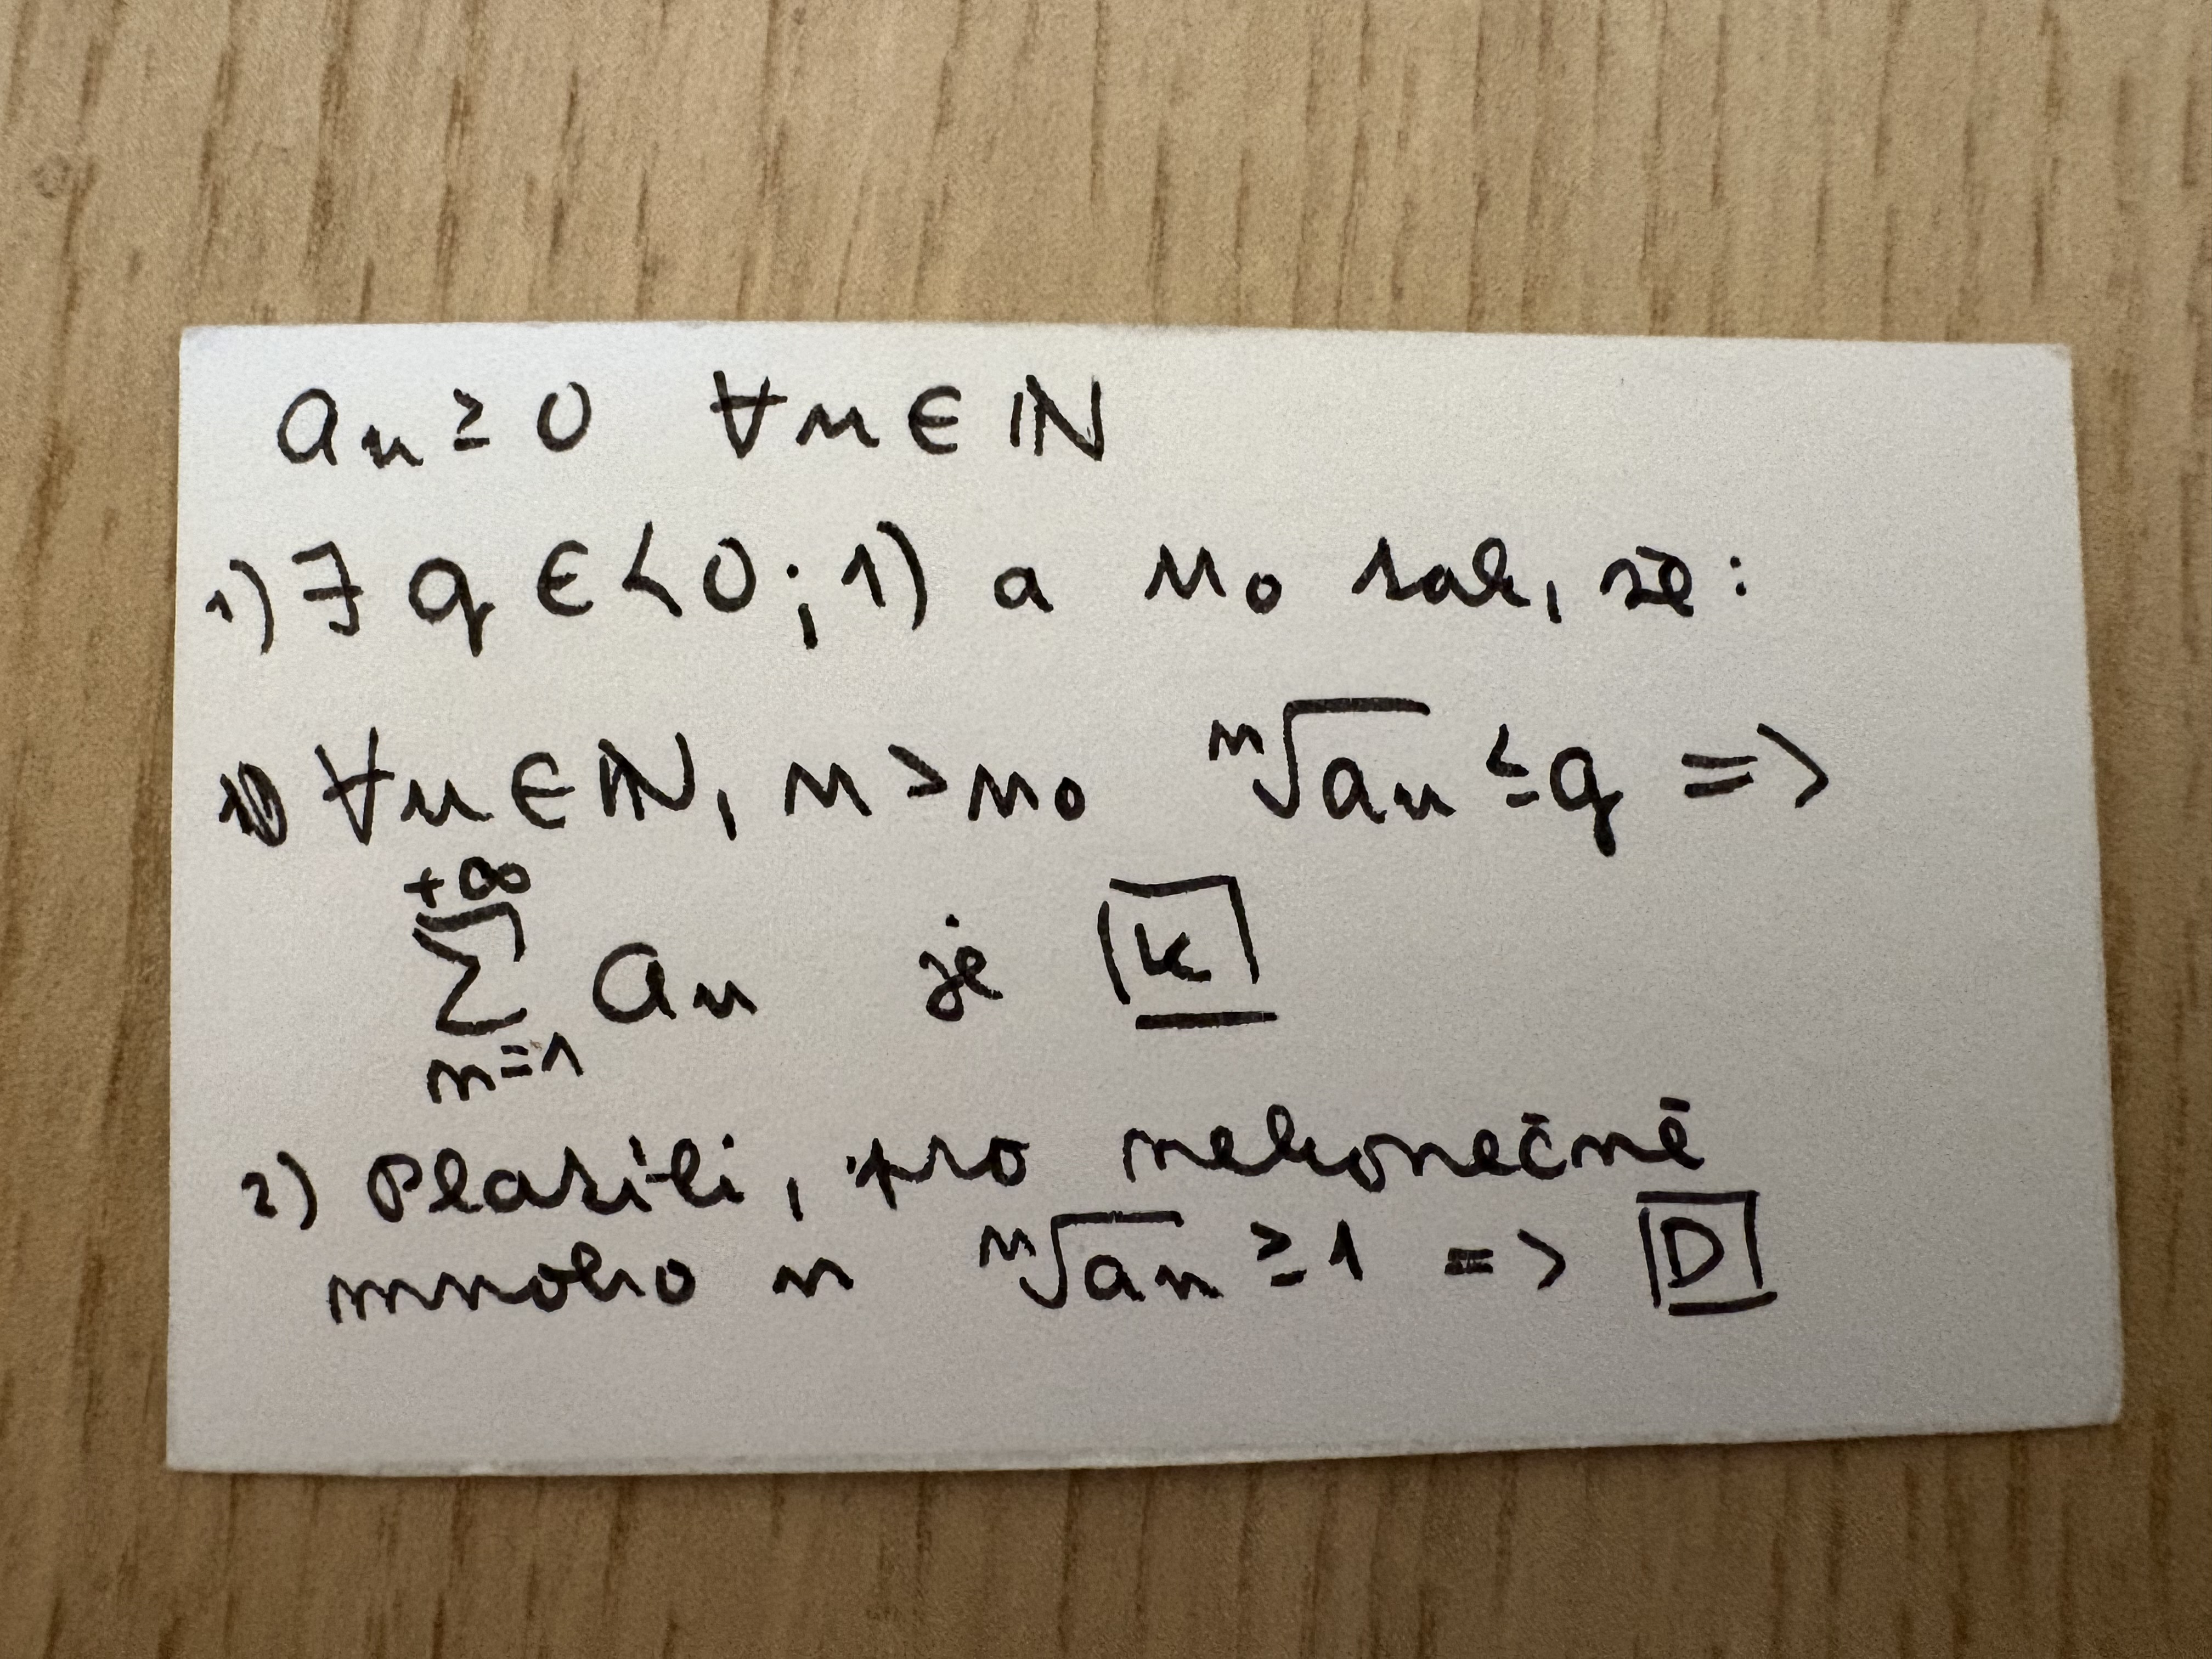 aₙ ≥ 0 ∀n ∈ ℕ
1) ∃ q ∈ <0; 1) a n₀ tak, že:
∀n ∈ ℕ, n > n₀ ⁿ√aₙ ≤ q =>
+∞
∑ aₙ je K
n=1
2) Platí-li, pro nekonečně
mnoho n ⁿ√aₙ ≥ 1 => D